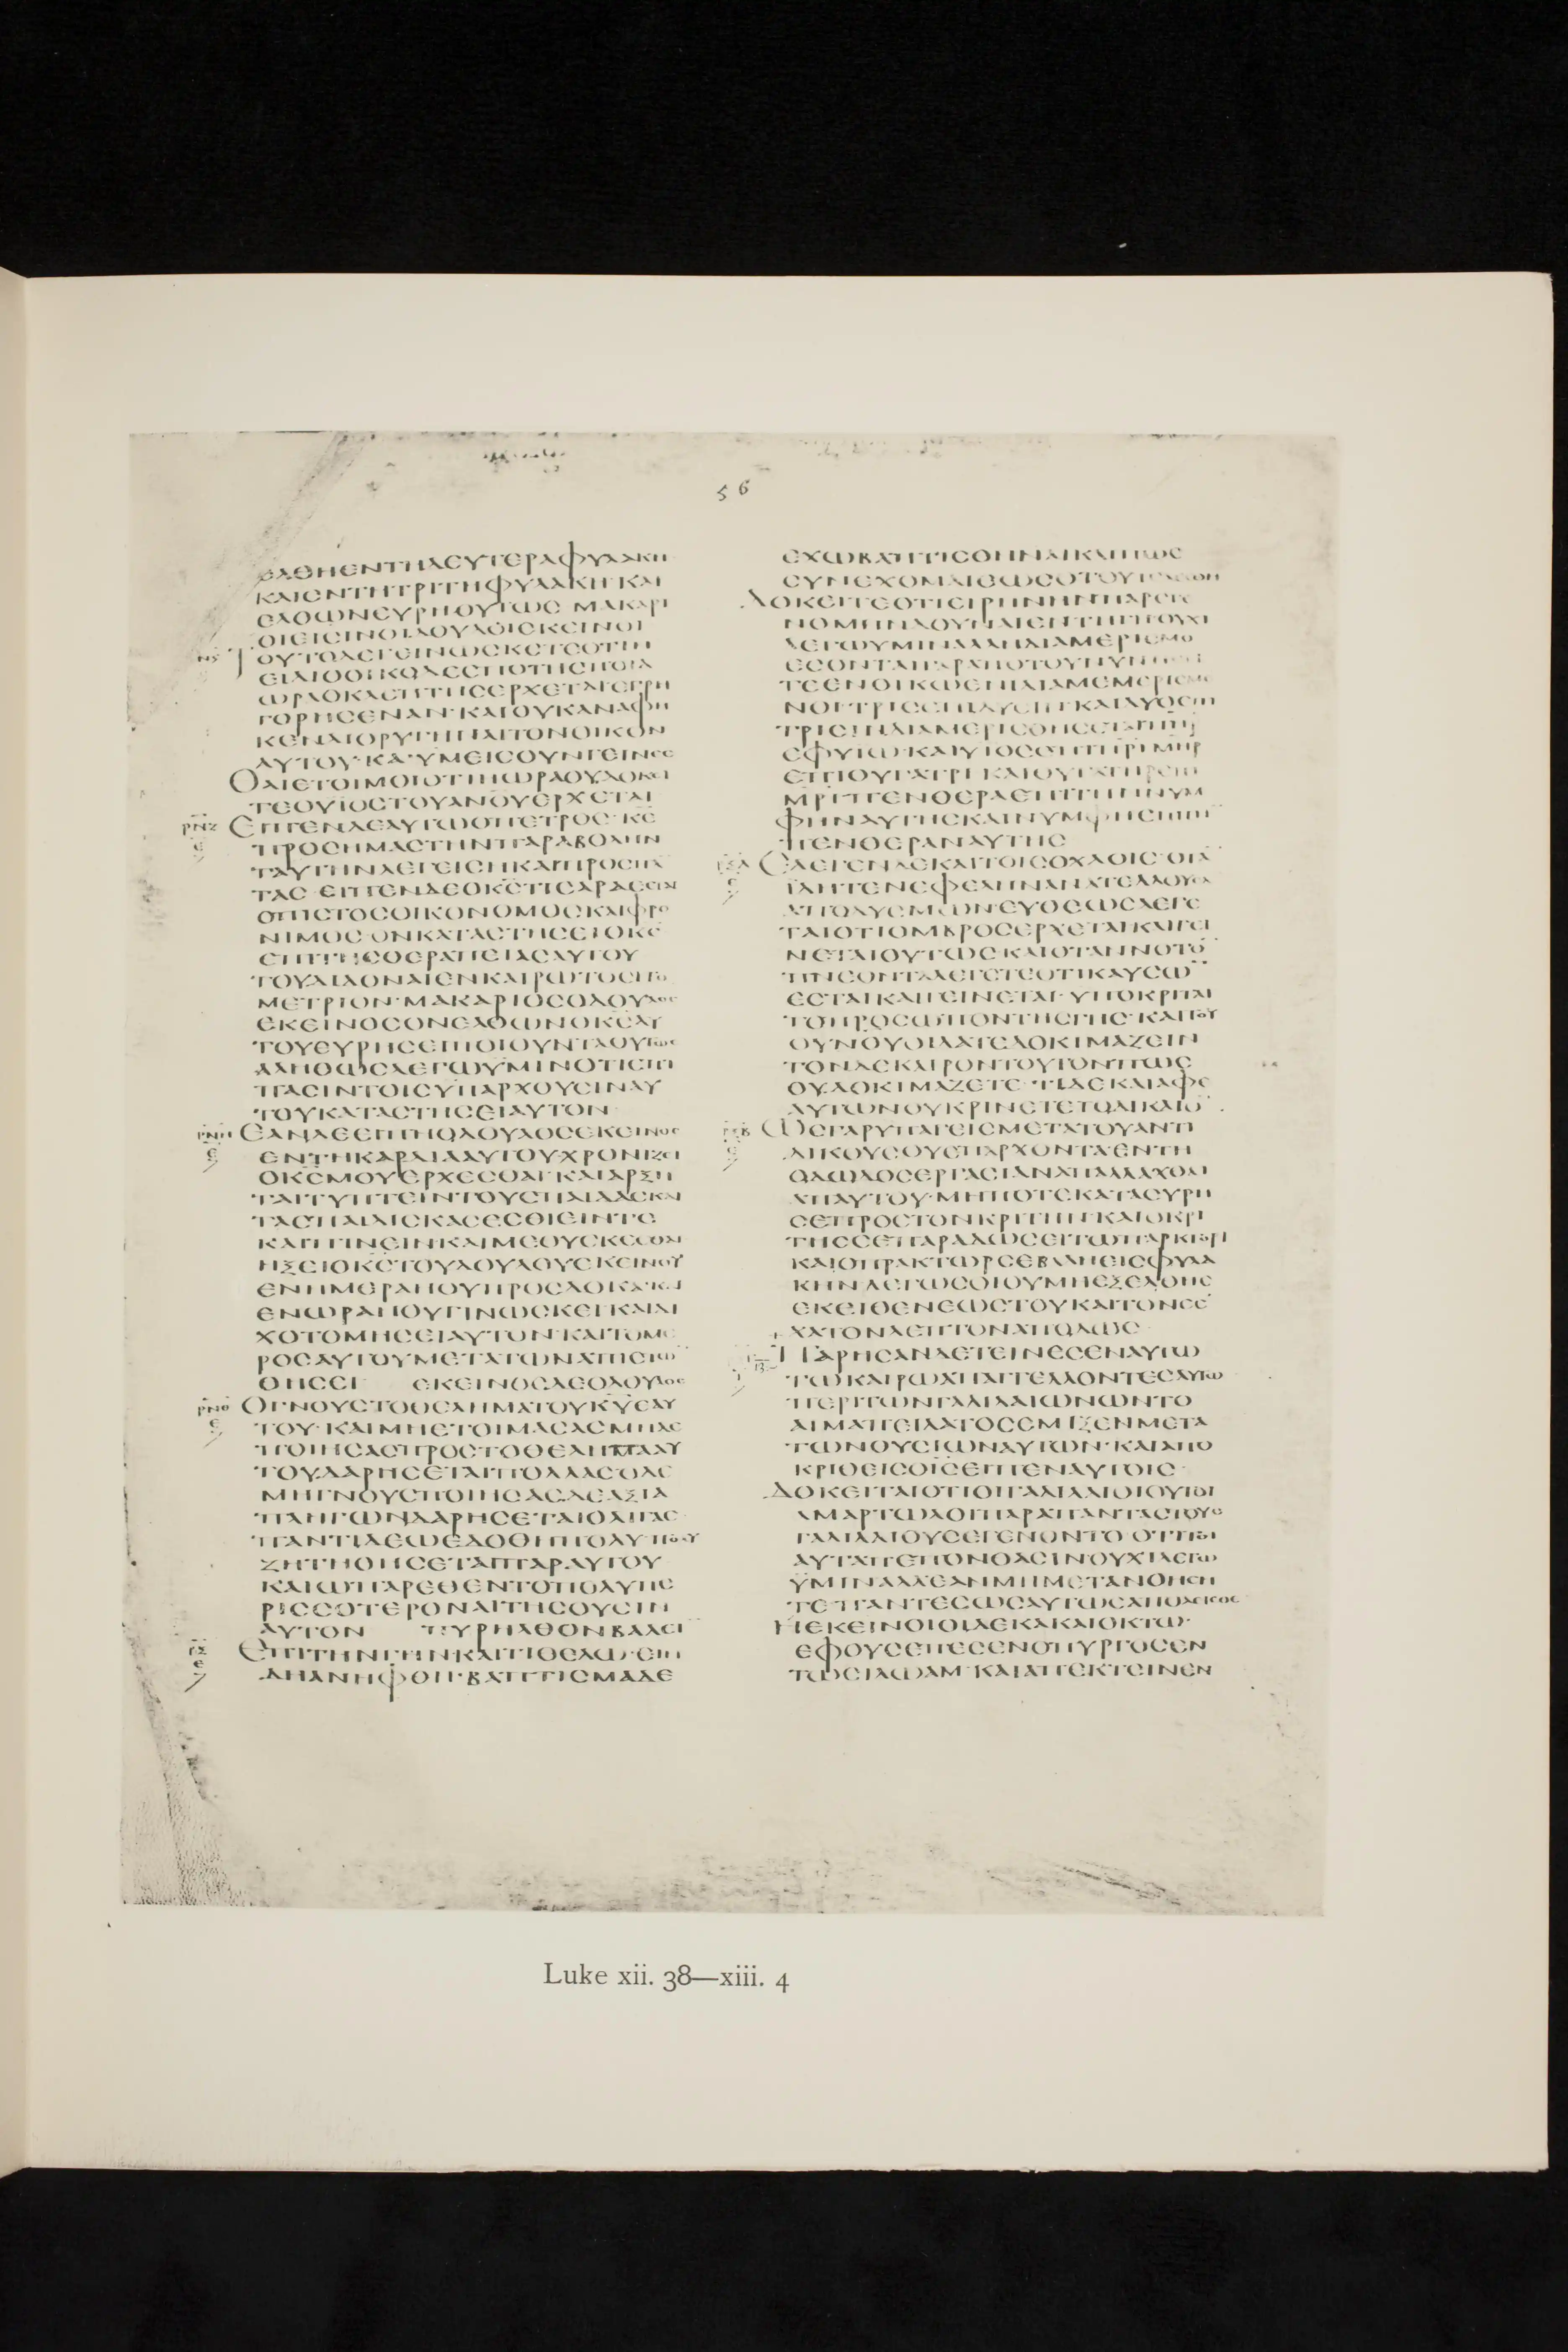 56
ΕΛΘΗΕΝΤΗΔΕΥΤΕΡΑΦΥΛΑΚΗ
ΚΑΙΕΝΤΗΤΡΙΤΗΦΥΛΑΚΗΚΑΙ
ΕΛΘΩΝΕΥΡΗΟΥΤΩΣ ΜΑΚΑΡΙ
ΟΙΕΙΣΙΝΟΙΔΟΥΛΟΙΕΚΕΙΝΟΙ
ΤΟΥΤΟΔΕΓΕΙΝΩΣΚΕΤΕΟΤΙΗ
ΕΙΔΙΟΟΙΚΟΔΕΣΠΟΤΗΣΠΟΙΑ
ΩΡΑΟΚΛΕΠΤΗΣΕΡΧΕΤΑΙΕΓΡΗ
ΓΟΡΗΣΕΝΑΝ·ΚΑΙΟΥΚΑΝΑΦΗ
ΚΕΝΔΙΟΡΥΓΗΝΑΙΤΟΝΟΙΚΟΝ
ΑΥΤΟΥ·ΚΑΙΥΜΕΙΣΟΥΝΓΕΙΝΕΣ
ΘΑΙΕΤΟΙΜΟΙΟΤΙΗΩΡΑΟΥΔΟΚΕΙ
ΤΕΟΥΙΟΣΤΟΥΑΝΟΥΕΡΧΕΤΑΙ
ΡΝΖ ΕΙΠΕΝΔΕΑΥΤΩΟΠΕΤΡΟΣ·ΚΕ
ΠΡΟΣΗΜΑΣΤΗΝΠΑΡΑΒΟΛΗΝ
ΤΑΥΤΗΝΛΕΓΕΙΣΗΚΑΙΠΡΟΣΠΑ
ΤΑΣ ΕΙΠΕΝΔΕΟΚΣΤΙΣΑΡΑΕΣΤΙΝ
ΟΠΙΣΤΟΣΟΙΚΟΝΟΜΟΣΚΑΙΦΡΟ
ΝΙΜΟΣ·ΟΝΚΑΤΑΣΤΗΣΕΙΟΚΣ
ΕΠΙΤΗΣΘΕΡΑΠΕΙΑΣΑΥΤΟΥ
ΤΟΥΔΙΔΟΝΑΙΕΝΚΑΙΡΩΤΟΣΙΤΟ
ΜΕΤΡΙΟΝ·ΜΑΚΑΡΙΟΣΟΔΟΥΛΟΣ
ΕΚΕΙΝΟΣΟΝΕΛΘΩΝΟΚΣΑΥ
ΤΟΥΕΥΡΗΣΕΙΠΟΙΟΥΝΤΑΟΥΤΩΣ
ΑΛΗΘΩΣΛΕΓΩΥΜΙΝΟΤΙΕΠΙ
ΠΑΣΙΝΤΟΙΣΥΠΑΡΧΟΥΣΙΝΑΥ
ΤΟΥΚΑΤΑΣΤΗΣΕΙΑΥΤΟΝ
ΡΝΗ ΕΑΝΔΕΕΙΠΗΟΔΟΥΛΟΣΕΚΕΙΝΟΣ
ΕΝΤΗΚΑΡΔΙΑΑΥΤΟΥΧΡΟΝΙΖΕΙ
ΟΚΣΜΟΥΕΡΧΕΣΘΑΙ·ΚΑΙΑΡΞΗ
ΤΑΙΤΥΠΤΕΙΝΤΟΥΣΠΑΙΔΑΣΚΑΙ
ΤΑΣΠΑΙΔΙΣΚΑΣΕΣΘΙΕΙΝΤΕ
ΚΑΙΠΙΝΕΙΝΚΑΙΜΕΘΥΣΚΕΣΘΑΙ
ΗΞΕΙΟΚΣΤΟΥΔΟΥΛΟΥΕΚΕΙΝΟΥ
ΕΝΗΜΕΡΑΗΟΥΠΡΟΣΔΟΚΑ·ΚΑΙ
ΕΝΩΡΑΗΟΥΓΙΝΩΣΚΕΙ·ΚΑΙΔΙ
ΧΟΤΟΜΗΣΕΙΑΥΤΟΝ·ΚΑΙΤΟΜΕ
ΡΟΣΑΥΤΟΥΜΕΤΑΤΩΝΑΠΙΣΤΩ
ΘΗΣΕΙ ΕΚΕΙΝΟΣΔΕΟΔΟΥΛΟΣ
ΡΝΘ ΟΓΝΟΥΣΤΟΘΕΛΗΜΑΤΟΥΚΥΕΑΥ
ΤΟΥ·ΚΑΙΜΗΕΤΟΙΜΑΣΑΣΜΗΔΕ
ΠΟΙΗΣΑΣΠΡΟΣΤΟΘΕΛΗΜΑΑΥ
ΤΟΥΔΑΡΗΣΕΤΑΙΠΟΛΛΑΣΟΔΕ
ΜΗΓΝΟΥΣΠΟΙΗΣΑΣΔΕΑΞΙΑ
ΠΛΗΓΩΝΔΑΡΗΣΕΤΑΙΟΛΙΓΑΣ
ΠΑΝΤΙΔΕΩΕΔΟΘΗΠΟΛΥΠΟΛΥ
ΖΗΤΗΘΗΣΕΤΑΙΠΑΡΑΥΤΟΥ
ΚΑΙΩΠΑΡΕΘΕΝΤΟΠΟΛΥΠΕ
ΡΙΣΣΟΤΕΡΟΝΑΙΤΗΣΟΥΣΙΝ
ΑΥΤΟΝ ΠΥΡΗΛΘΟΝΒΑΛΕΙ
ΡΞ ΕΠΙΤΗΝΓΗΝ·ΚΑΙΤΙΘΕΛΩ·ΕΙΗ
ΔΗΑΝΗΦΘΗ·ΒΑΠΤΙΣΜΑΔΕ
ΕΧΩΒΑΠΤΙΣΘΗΝΑΙΚΑΙΠΩΣ
ΣΥΝΕΧΟΜΑΙΕΩΣΟΤΟΥΤΕΛΕΣΘΗ
ΔΟΚΕΙΤΕΟΤΙΕΙΡΗΝΗΝΠΑΡΕΓΕ
ΝΟΜΗΝΔΟΥΝΑΙΕΝΤΗΓΗΟΥΧΙ
ΛΕΓΩΥΜΙΝΑΛΛΗΔΙΑΜΕΡΙΣΜΟ
ΕΣΟΝΤΑΙΓΑΡΑΠΟΤΟΥΝΥΝ
ΤΕΕΝΟΙΚΩΕΝΙΔΙΑΜΕΜΕΡΙΣΜΕ
ΝΟΙ·ΤΡΕΙΣΕΠΙΔΥΣΙΝ·ΚΑΙΔΥΟΕΠΙ
ΤΡΙΣΙΝΔΙΑΜΕΡΙΣΘΗΣΕΤΑΙΠΗΡ
ΕΦΥΙΩ·ΚΑΙΥΙΟΣΕΠΙΠΡΙΜΗΡ
ΕΠΙΘΥΓΑΤΡΙ ΚΑΙΘΥΓΑΤΗΡΕΠΙ
ΜΡΙΠΕΝΘΕΡΑΕΠΙΤΗΝΝΥΜ
ΦΗΝΑΥΤΗΣΚΑΙΝΥΜΦΗΕΠΙΤΗ
ΠΕΝΘΕΡΑΝΑΥΤΗΣ
ΡΞΑ ΕΛΕΓΕΝΔΕΚΑΙΤΟΙΣΟΧΛΟΙΣ·ΟΤΑ
ΙΔΗΤΕΝΕΦΕΛΗΝΑΝΑΤΕΛΛΟΥΣΑ
ΑΠΟΔΥΣΜΩΝ·ΕΥΘΕΩΣΛΕΓΕ
ΤΑΙΟΤΙΟΜΒΡΟΣΕΡΧΕΤΑΙ·ΚΑΙΓΕΙ
ΝΕΤΑΙΟΥΤΩΣ·ΚΑΙΟΤΑΝΝΟΤΟ
ΠΝΕΟΝΤΑΛΕΓΕΤΕΟΤΙΚΑΥΣΩ
ΕΣΤΑΙΚΑΙΓΕΙΝΕΤΑΙ·ΥΠΟΚΡΙΤΑΙ
ΤΟΠΡΟΣΩΠΟΝΤΗΣΓΗΣ·ΚΑΙΤΟΥ
ΟΥΝΟΥΟΙΔΑΤΕΔΟΚΙΜΑΖΕΙΝ
ΤΟΝΔΕΚΑΙΡΟΝΤΟΥΤΟΝΠΩΣ
ΟΥΔΟΚΙΜΑΖΕΤΕ·ΤΙΔΕΚΑΙΑΦΕ
ΑΥΤΩΝΟΥΚΡΙΝΕΤΕΤΟΔΙΚΑΙΟ
ΡΞΒ ΩΣΓΑΡΥΠΑΓΕΙΣΜΕΤΑΤΟΥΑΝΤΙ
ΔΙΚΟΥΣΟΥΕΠΑΡΧΟΝΤΑΕΝΤΗ
ΟΔΩΔΟΣΕΡΓΑΣΙΑΝΑΠΑΛΛΑΧΘΑΙ
ΑΠΑΥΤΟΥ·ΜΗΠΟΤΕΚΑΤΑΣΥΡΗ
ΣΕΠΡΟΣΤΟΝΚΡΙΤΗΝ·ΚΑΙΟΚΡΙ
ΤΗΣΣΕΠΑΡΑΔΩΣΕΙΤΩΠΡΑΚΤΟΡΙ
ΚΑΙΟΠΡΑΚΤΩΡΣΕΒΑΛΗΕΙΣΦΥΛΑ
ΚΗΝΛΕΓΩΣΟΙΟΥΜΗΕΞΕΛΘΗΣ
ΕΚΕΙΘΕΝΕΩΣΤΟΥΚΑΙΤΟΝΕΣ
ΧΑΤΟΝΛΕΠΤΟΝΑΠΟΔΩΣ
ΠΑΡΗΣΑΝΔΕΤΕΙΝΕΣΕΝΑΥΤΩ
ΤΩΚΑΙΡΩΑΠΑΓΓΕΛΛΟΝΤΕΣΑΥΤΩ
ΠΕΡΙΤΩΝΓΑΛΙΛΑΙΩΝΩΝΤΟ
ΑΙΜΑΠΕΙΛΑΤΟΣΕΜΙΞΕΝΜΕΤΑ
ΤΩΝΘΥΣΙΩΝΑΥΤΩΝ·ΚΑΙΑΠΟ
ΚΡΙΘΕΙΣΟΙΣΕΙΠΕΝΑΥΤΟΙΣ
ΔΟΚΕΙΤΑΙΟΤΙΟΙΓΑΛΙΛΑΙΟΙΟΥΤΟΙ
ΑΜΑΡΤΩΛΟΙΠΑΡΑΠΑΝΤΑΣΤΟΥΣ
ΓΑΛΙΛΑΙΟΥΣΕΓΕΝΟΝΤΟ·ΟΤΙΤΟΙ
ΑΥΤΑΠΕΠΟΝΘΑΣΙΝΟΥΧΙΛΕΓΩ
ΥΜΙΝΑΛΛΕΑΝΜΗΜΕΤΑΝΟΗΣΗ
ΤΕ·ΠΑΝΤΕΣΩΣΑΥΤΩΣΑΠΟΛΕΙΣΘΕ
ΗΕΚΕΙΝΟΙΟΙΔΕΚΑΚΑΙΟΚΤΩ·
ΕΦΟΥΣΕΠΕΣΕΝΟΠΥΡΓΟΣΕΝ
ΤΩΣΙΛΩΑΜ·ΚΑΙΑΠΕΚΤΕΙΝΕΝ
Luke xii. 38—xiii. 4